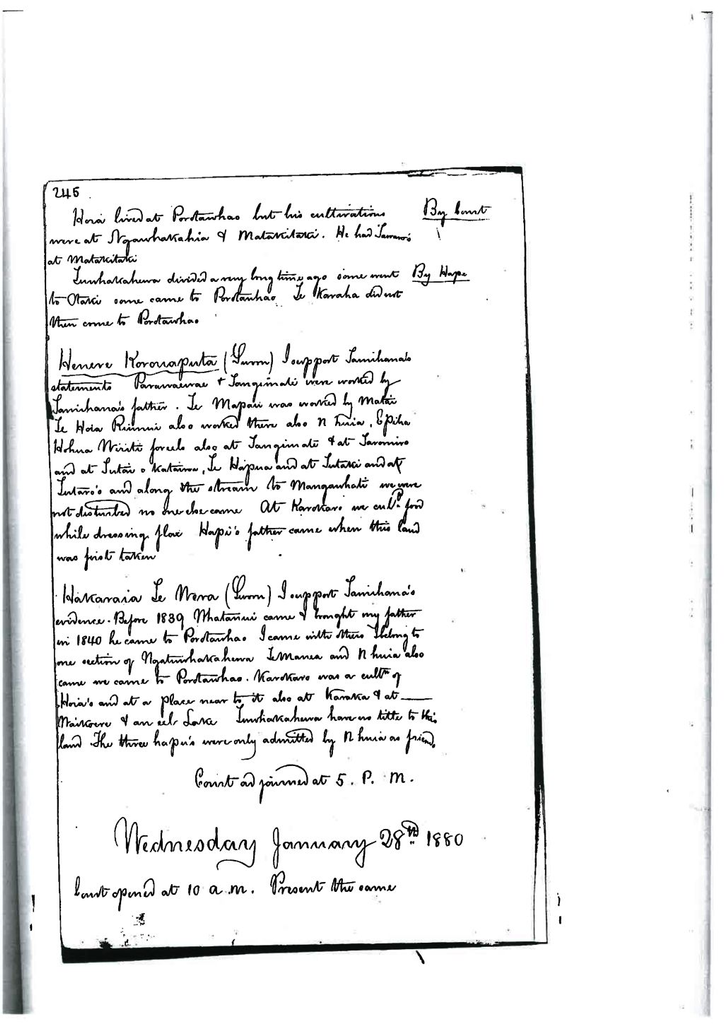 246
Hoia lived at Porotawhao but his cultivations By Court
were at Ngawhakahia & Matakitaki. He had
at Matakitaki
Tuwhakahewa divided a very long time ago some went By Hapi
to Otaki some came to Porotawhao. Te Karaha did not
then come to Porotawhao
Henere Koronaputa (Sworn) I support Tamihana's
statements Parawaewae & Tangimate were worked by
Tamihana's father. Te Mapau was worked by Matai
Te Hoia also worked there also N Huia,
Hohua Wiriti also at Tangimate & at
and at , Te Hapua and at and at
and along the stream to Mangawhati we were
not disturbed no one else came At Karokaro we cultd food
while dressing flax Hapi's father came when this land
was first taken
Hakaraia Te Wera (Sworn) I support Tamihana's
evidence. Before 1839 Whatanui came & brought my father
in 1840 he came to Porotawhao I came with others I belong to
one section of Ngatiwhakahewa Te Manea and N huia also
came we came to Porotawhao. Karokaro was a cultn of
Hoia's and at a place near to it also at Karaka & at
& an eel Lake Tuwhakahewa have no title to this
land. The three hapu's were only admitted by N huia as friends
Court adjourned at 5. P. M.
Wednesday January 28th 1880
Court opened at 10 a.m. Present the same